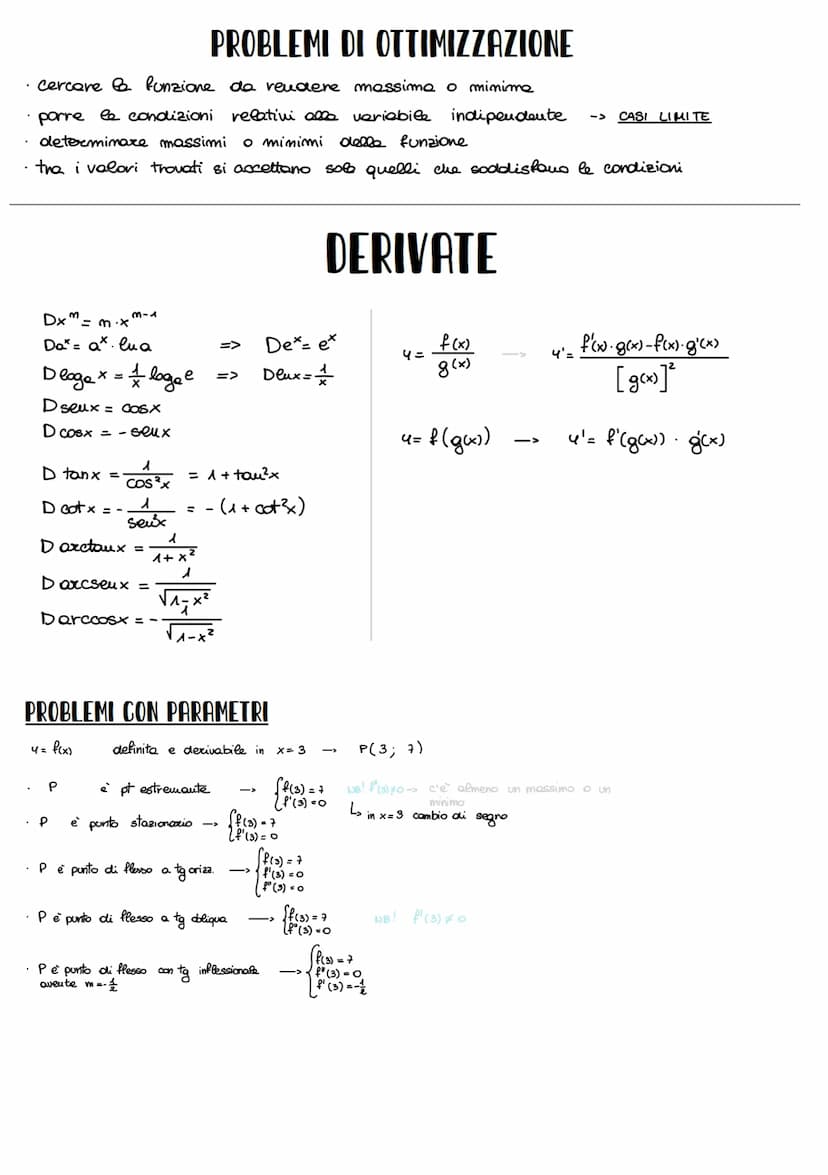 PROBLEMI DI OTTIMIZZAZIONE
· cercare la funzione da rendere massima o minima
· porre le condizioni relativi alla variabile indipendente -> CASI LIMITE
· determinare massimi o minimi della funzione
· tra i valori trovati si accettano solo quelli che soddisfano le condizioni
DERIVATE
Dxᵐ = m·xᵐ⁻¹
Daˣ = aˣ· lna => Deˣ = eˣ
D logₐx = 1/x logₐe => Dlnx = 1/x
D senx = cosx
D cosx = - senx
D tanx = 1/cos²x = 1 + tan²x
D cotx = - 1/sen²x = - (1 + cot²x)
D arctanx = 1/1+x²
D arcsenx = 1/√1-x²
D arccosx = - 1/√1-x²
y = f(x)/g(x) -> y' = f'(x)·g(x)-f(x)·g'(x)/[g(x)]²
y = f(g(x)) -> y' = f'(g(x)) · g'(x)
PROBLEMI CON PARAMETRI
y = f(x) definita e derivabile in x=3 -> P(3; 7)
· P è pt estremante -> {f(3) = 7 f'(3) = 0 NB! f''(3)≠0 -> c'è almeno un massimo o un minimo
↳ in x=3 cambio di segno
· P è punto stazionario -> {f(3) = 7 f'(3) = 0
· P è punto di flesso a tg orizz. -> {f(3) = 7 f'(3) = 0 f''(3) = 0
· P è punto di flesso a tg obliqua -> {f(3) = 7 f''(3) = 0 NB! f'(3) ≠ 0
· P è punto di flesso con tg inflessionale -> {f(3) = 7 f''(3) = 0 f'(3) = -1/2
avente m = -1/2